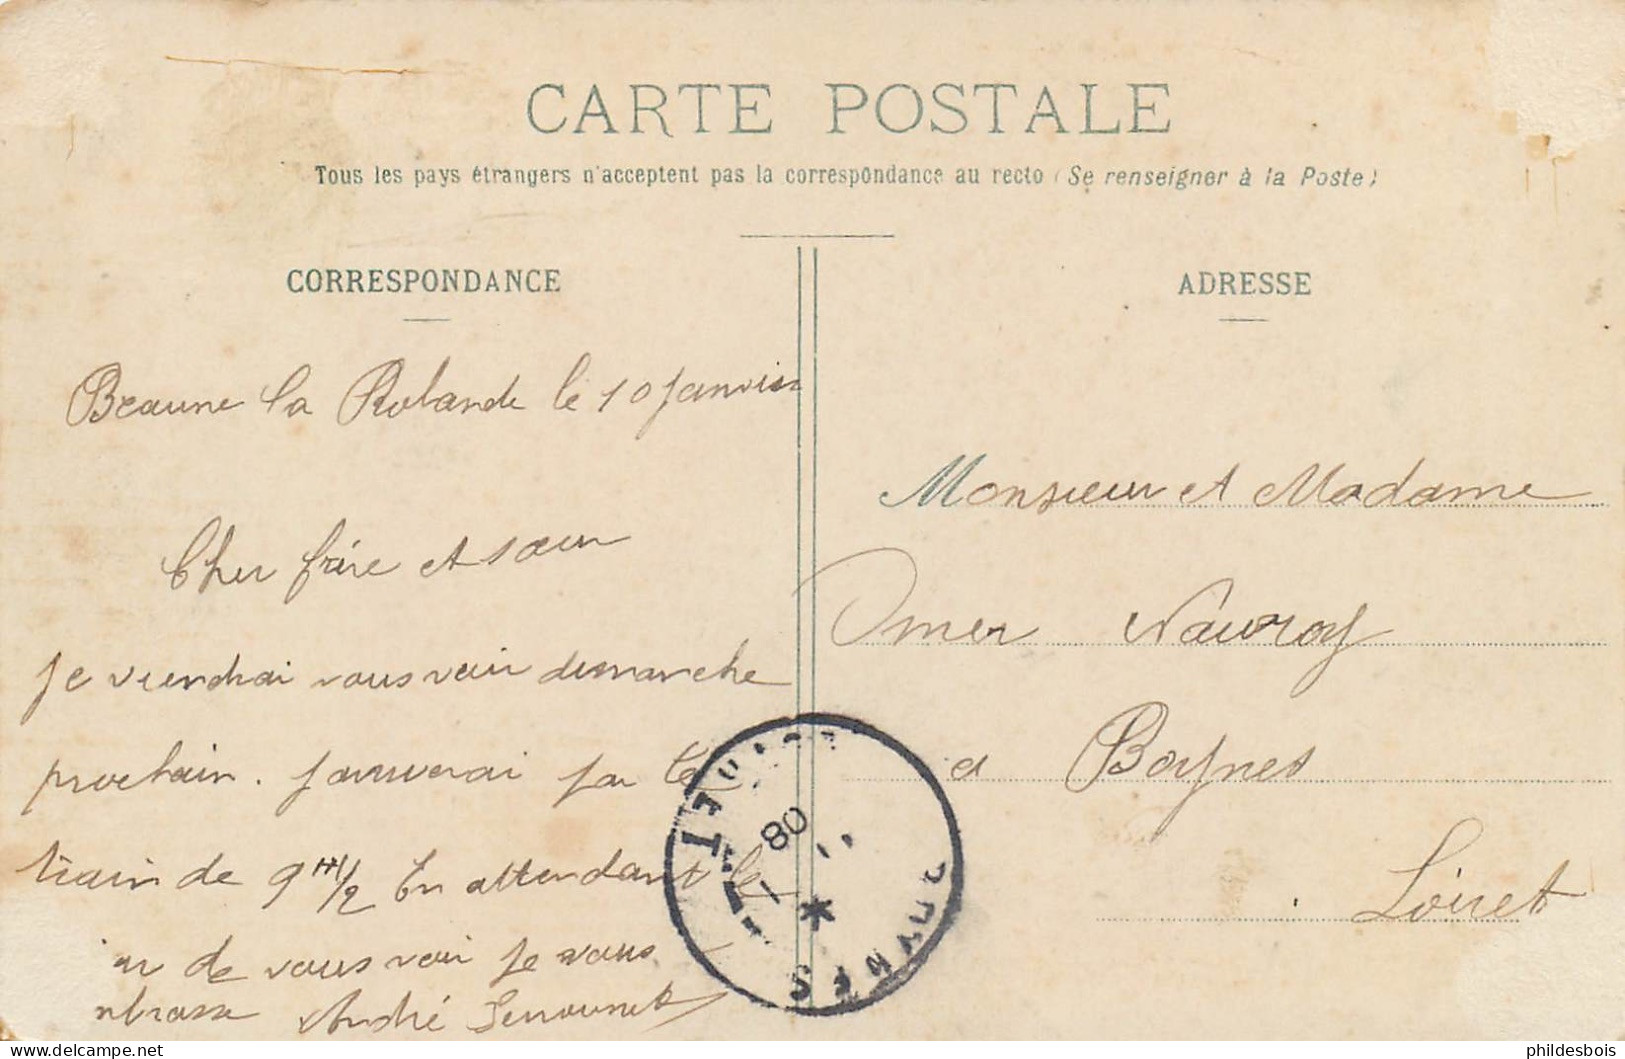 CARTE POSTALE
Tous les pays étrangers n'acceptent pas la correspondance au recto (Se renseigner à la Poste)
CORRESPONDANCE
Beaune la Rolande le 10 Janvier
Cher frère et sœur
Je viendrai vous voir dimanche
prochain. J'arriverai par le
train de 9 H 1/2 En attendant le
de vous voir Je vous
André
ADRESSE
Monsieur et Madame
Omer Nauroy
a Boynes
Loiret
BOYNES
LOIRET
08
phildesbois
delcampe.net